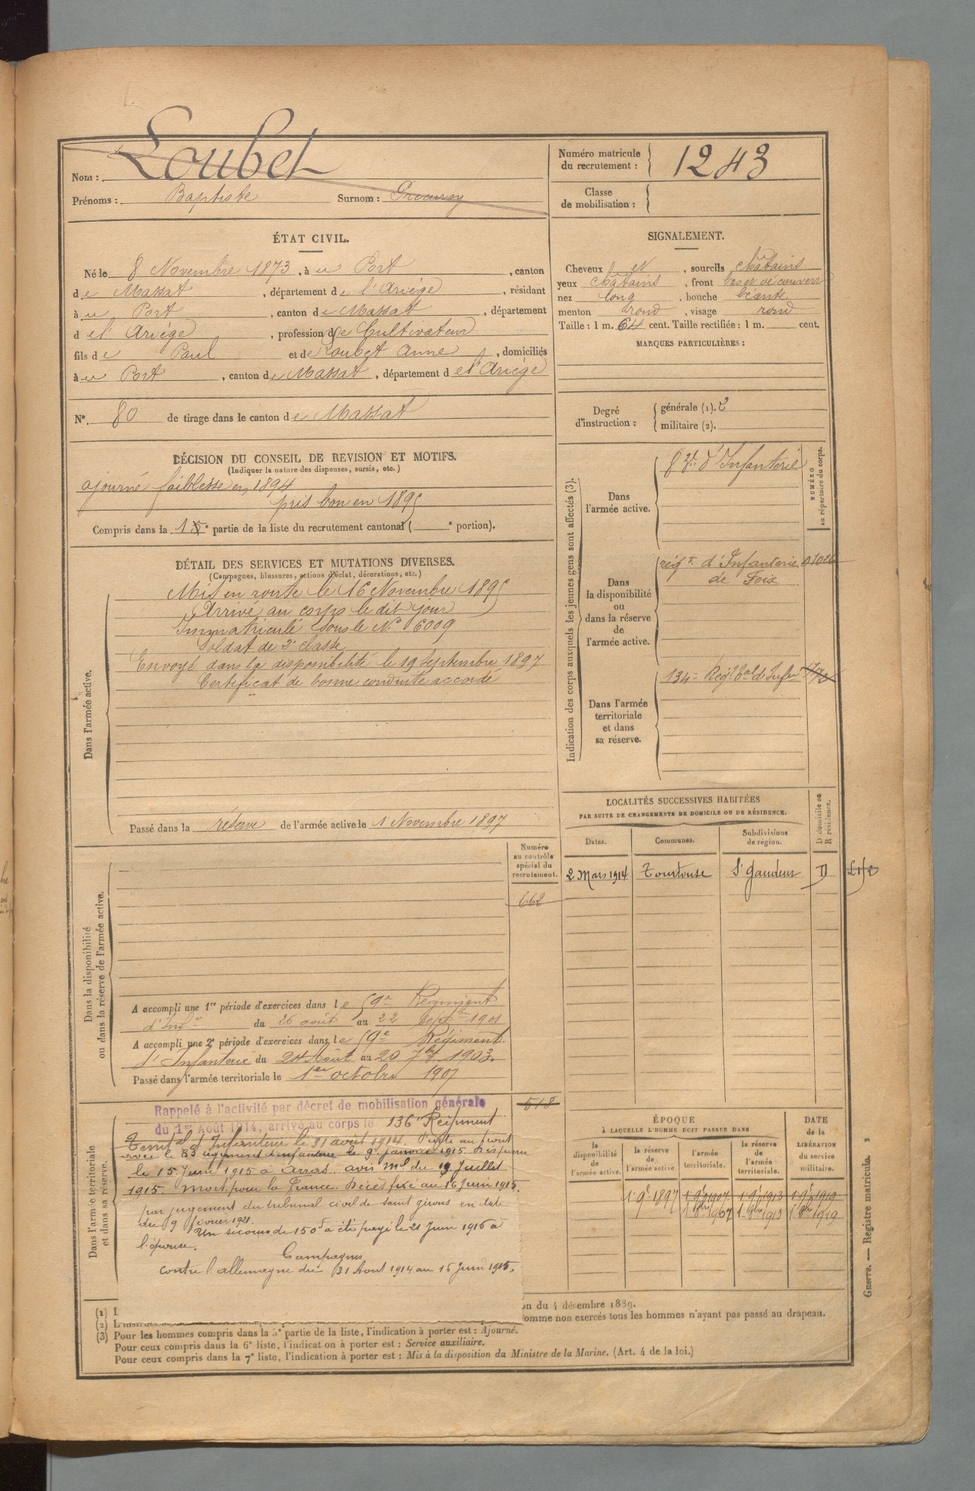 Nom : Loubet
Prénoms : Baptiste Surnom :
Numéro matricule
du recrutement : 1243
Classe
de mobilisation :
ÉTAT CIVIL.
Né le 8 Novembre 1873, à u Port, canton
de Massat, département de l'Ariège, résidant
à u Port, canton de Massat, département
d el Ariége, profession de Cultivateur
fils de Paul et de Loubet Anne, domiciliés
à u Port, canton de Massat, département d el'Ariége
N° 80 de tirage dans le canton de Massat
SIGNALEMENT.
Cheveux , sourcils châtains
yeux châtains, front
nez long, bouche béante
menton rond, visage rond
Taille : 1 m. 64 cent. Taille rectifiée : 1 m. cent.
MARQUES PARTICULIÈRES :
Degré
d'instruction :
générale (1). 2
militaire (2).
DÉCISION DU CONSEIL DE REVISION ET MOTIFS.
(Indiquer la nature des dispenses, sursis, etc.)
ajourné faiblesse en 1894
pris bon en 1895
Compris dans la partie de la liste du recrutement cantonal ( portion).
DÉTAIL DES SERVICES ET MUTATIONS DIVERSES.
(Campagnes, blessures, actions d'éclat, décorations, etc.)
Dans l'armée active.
Mis en route le 16 Novembre 1895
Arrivé au corps le dit jour
Immatriculé sous le N° 6009
Soldat de 2e classe
Envoyé dans la disponibilité le 19 Septembre 1897
Certificat de bonne conduite accordé
Passé dans la réserve de l'armée active le 1 Novembre 1897
Indication des corps auxquels les jeunes gens sont affectés (3).
NUMÉRO
au répertoire du corps.
Dans
l'armée active.
d'Infanterie
Dans
la disponibilité
ou
dans la réserve
de
l'armée active.
régt d'Infanterie
de Foix
Dans l'armée
territoriale
et dans
sa réserve.
134e Régt d'Infie
LOCALITÉS SUCCESSIVES HABITÉES
PAR SUITE DE CHANGEMENTS DE DOMICILE OU DE RÉSIDENCE.
Dates. Communes. Subdivisions
de région. D domicile ou
R résidence.
2 Mars 1914 Tourtouse St Gaudens D
Dans la disponibilité
ou dans la réserve de l'armée active.
Numéro
au contrôle
spécial du
recrutement.
662
A accompli une 1re période d'exercices dans le 59e Régiment
d'Infie du 26 août au 22 Septbre 1901
A accompli une 2e période d'exercices dans le 59e Régiment
d'Infanterie du 24 Août au 20 7bre 1903.
Passé dans l'armée territoriale le 1er octobre 1907
518
Dans l'armée territoriale
et dans sa réserve.
Rappelé à l'activité par décret de mobilisation générale
du 1er Août 1914, arrivé au corps le 136e Régiment
Territal d'Infanterie le 31 août 1914. Passé au front
avec le 83 régiment d'infanterie le 9 janvier 1915. Disparu
le 15 Juin 1915 à Arras. avis Ml du 19 Juillet
1915. Mort pour la France. Décès fixé au 16 juin 1915,
par jugement du tribunal civil de Saint Girons en date
du 9 février 1921.
Un secours de 150f a été payé le 21 Juin 1916 à
l'épouse.
Campagnes
contre l'allemagne du 31 Aout 1914 au 15 Juin 1915.
ÉPOQUE
À LAQUELLE L'HOMME DOIT PASSER DANS
la
disponibilité
de
l'armée active.
la réserve
de
l'armée active.
l'armée
territoriale.
la réserve
de
l'armée
territoriale.
DATE
de la
LIBÉRATION
du service
militaire.
1 9bre 1897 1 9bre 1907 1 9bre 1913 1 9bre 1919
(1)
(2)
on du 4 décembre 1889.
omme non exercés tous les hommes n'ayant pas passé au drapeau.
(3) Pour les hommes compris dans la 5e partie de la liste, l'indication à porter est : Ajourné.
Pour ceux compris dans la 6e liste, l'indication à porter est : Service auxiliaire.
Pour ceux compris dans la 7e liste, l'indication à porter est : Mis à la disposition du Ministre de la Marine. (Art. 4 de la loi.)
Guerre. — Registre matricule. 2